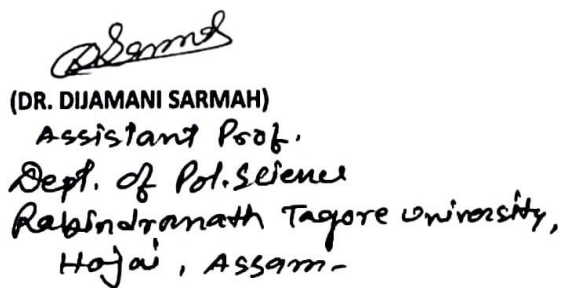 DSarmah
(DR. DIJAMANI SARMAH)
Assistant Prof.
Dept. of Pol. Science
Rabindranath Tagore University,
Hojai, Assam-